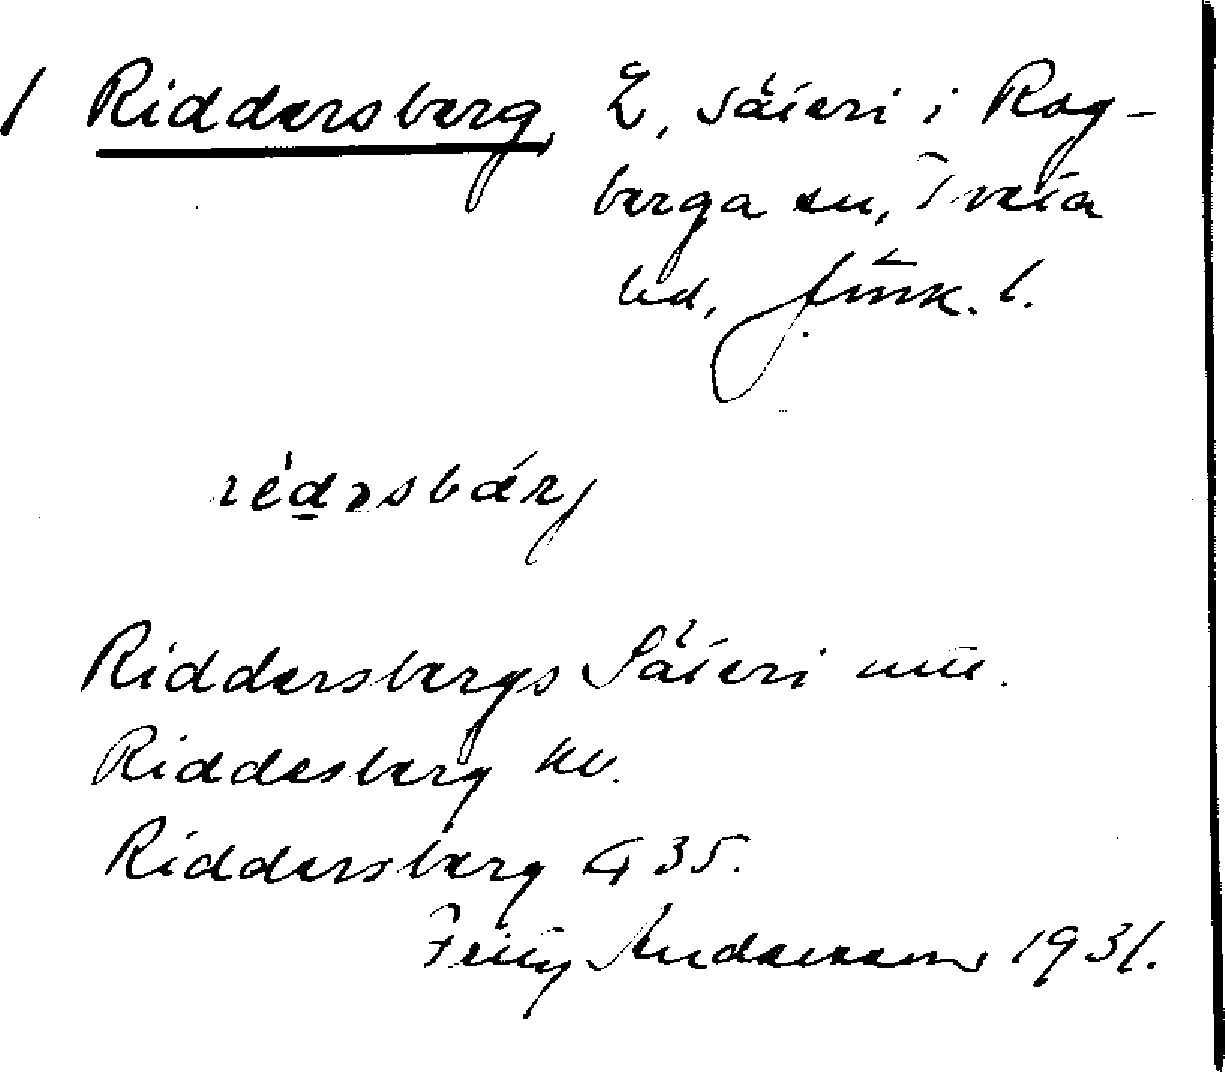 / Riddersberg, Z, säteri i Rog-
berga sn, Tveta
hd, Jönk. l.
rédərsbärj
Riddersbergs Säteri
Riddesberg
Riddersberg G 35.
Fritz Andersson 1931.